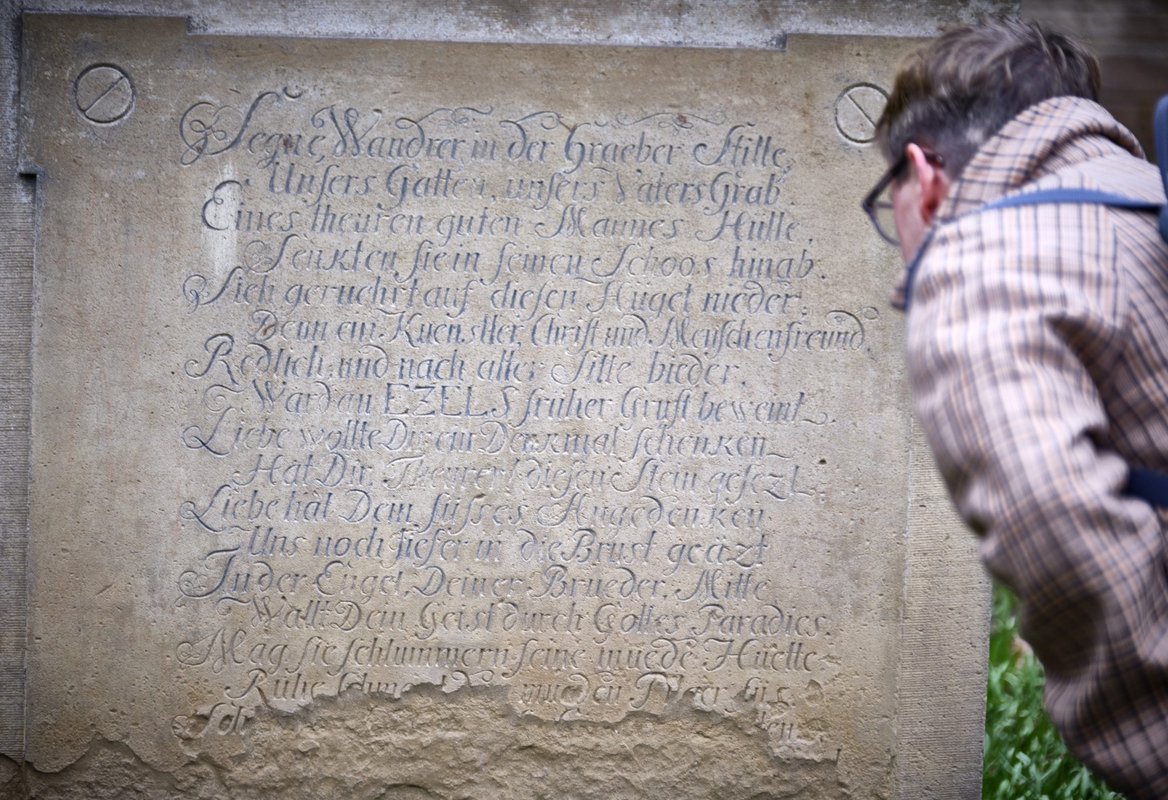 Segne, Wandrer in der Graeber Stille,
Unsers Gatten, unsers Vaters Grab.
Eines theuren guten Mannes Hülle,
Senkten sie in seinen Schoos hinab.
Sieh gerührt auf diesen Hügel nieder;
Denn ein Kuenstler, Christ und Menschenfreund,
Redlich, und nach alter Sitte bieder,
Ward an EZELS früher Gruft beweint.
Liebe wollte Dir ein Denkmal schenken
Hat Dir, Theurer! diesen Stein gesezt.
Liebe hat Dein süsses Angedenken
Uns noch tiefer in die Brust geäzt
In der Engel, Deiner Brueder, Mitte
Wallt Dein Geist durch Gottes Paradies.
Mag sie schlummern seine muede Huette
Ruhe den